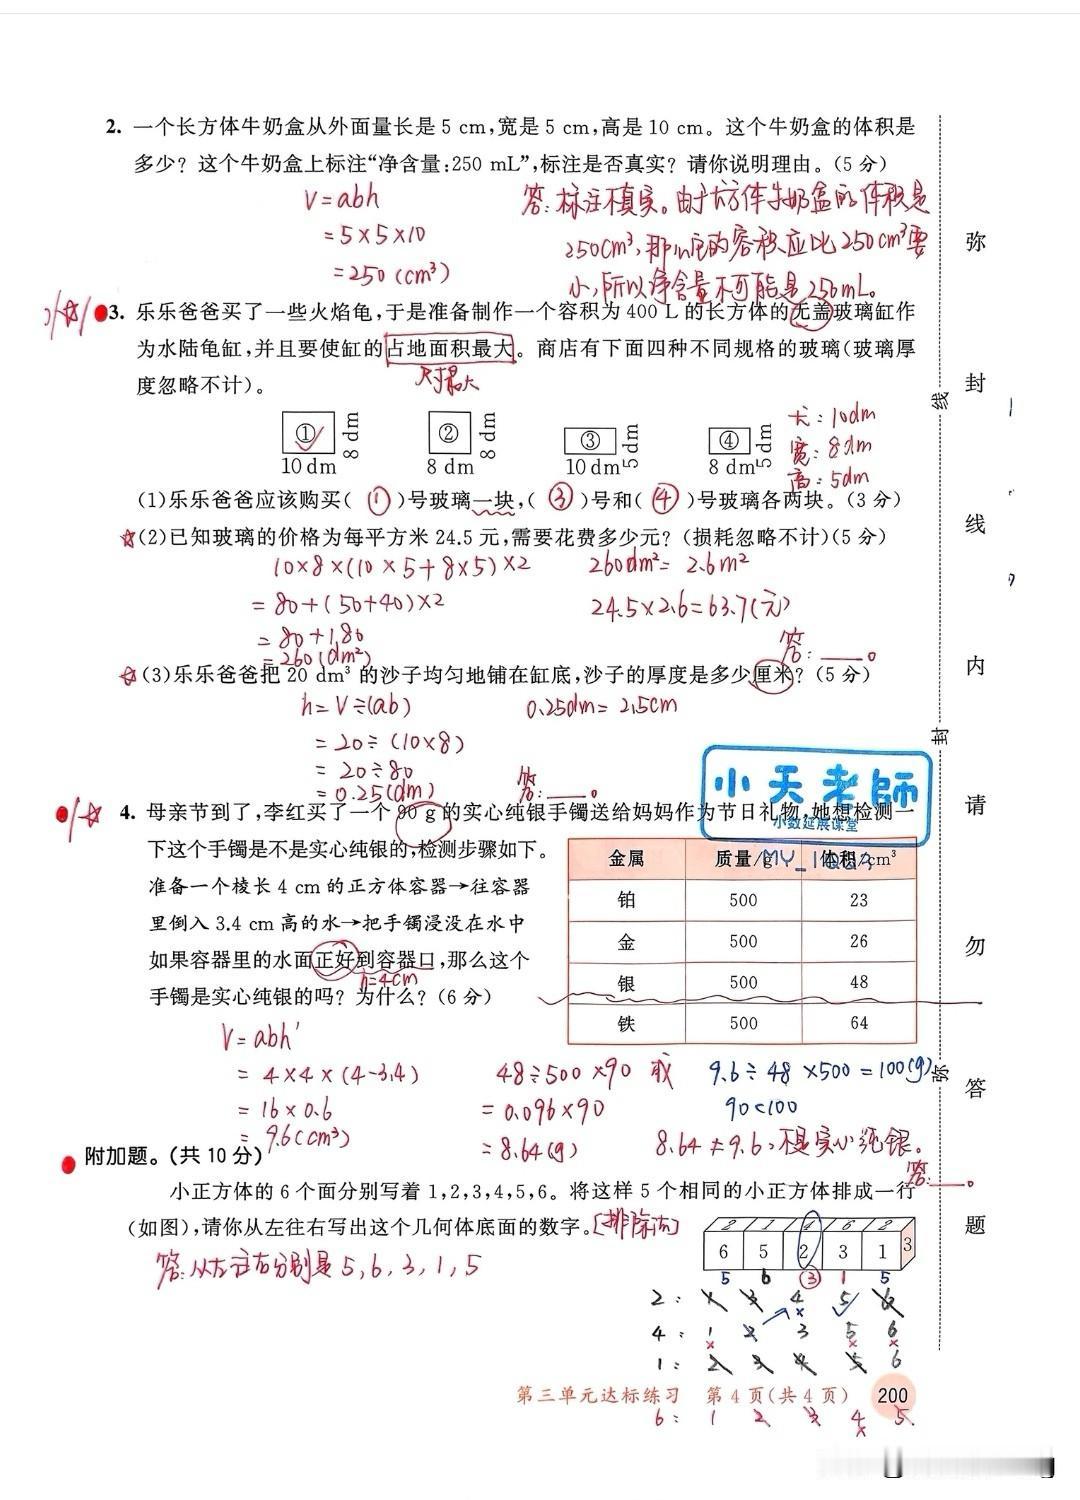 2. 一个长方体牛奶盒从外面量长是 5 cm,宽是 5 cm,高是 10 cm。这个牛奶盒的体积是
多少？这个牛奶盒上标注“净含量:250 mL”,标注是否真实？请你说明理由。(5 分)
V=abh
=5×5×10
=250(cm³)
答:标注不真实。由于长方体牛奶盒的体积是
250cm³,那么它的容积应比250cm³要
小,所以净含量不可能是250mL。
3. 乐乐爸爸买了一些火焰龟,于是准备制作一个容积为 400 L 的长方体的无盖玻璃缸作
为水陆龟缸,并且要使缸的占地面积最大。商店有下面四种不同规格的玻璃(玻璃厚
度忽略不计)。
尺寸最大
① 8 dm 10 dm
② 8 dm 8 dm
③ 5 dm 10 dm
④ 5 dm 8 dm
长:10dm
宽:8dm
高:5dm
(1)乐乐爸爸应该购买( ① )号玻璃一块,( ③ )号和( ④ )号玻璃各两块。(3 分)
☆(2)已知玻璃的价格为每平方米 24.5 元,需要花费多少元？(损耗忽略不计)(5 分)
10×8×(10×5+8×5)×2
=80+(50+40)×2
=80+180
=260(dm²)
260dm²=2.6m²
24.5×2.6=63.7(元)
答:____。
☆(3)乐乐爸爸把 20 dm³ 的沙子均匀地铺在缸底,沙子的厚度是多少厘米？(5 分)
h=V÷(ab)
=20÷(10×8)
=20÷80
=0.25(dm)
0.25dm=2.5cm
答:____。
小天老師
小数延展课堂
4. 母亲节到了,李红买了一个 90 g 的实心纯银手镯送给妈妈作为节日礼物,她想检测一
下这个手镯是不是实心纯银的,检测步骤如下。
准备一个棱长 4 cm 的正方体容器→往容器
里倒入 3.4 cm 高的水→把手镯浸没在水中
如果容器里的水面正好到容器口,那么这个
h=4cm
手镯是实心纯银的吗？为什么？(6 分)
金属 质量/g 体积/cm³
铂 500 23
金 500 26
银 500 48
铁 500 64
V=abh'
=4×4×(4-3.4)
=16×0.6
=9.6(cm³)
48÷500×90 或
=0.096×90
=8.64(g)
9.6÷48×500=100(g)
90<100
8.64≠9.6,不是实心纯银。
答:____。
附加题。(共 10 分)
小正方体的 6 个面分别写着 1,2,3,4,5,6。将这样 5 个相同的小正方体排成一行
(如图),请你从左往右写出这个几何体底面的数字。[排除法]
答:从左往右分别是5,6,3,1,5
2 1 4 6 2
6 5 2 3 1 3
5 6 ③ 1 5
2: 1 3 4 5 6
4: 1 2 3 5 6
1: 2 3 4 5 6
第三单元达标练习 第 4 页(共 4 页) 200
6: 1 2 3 4 5
弥
封
线
内
请
勿
答
题
线
封
弥